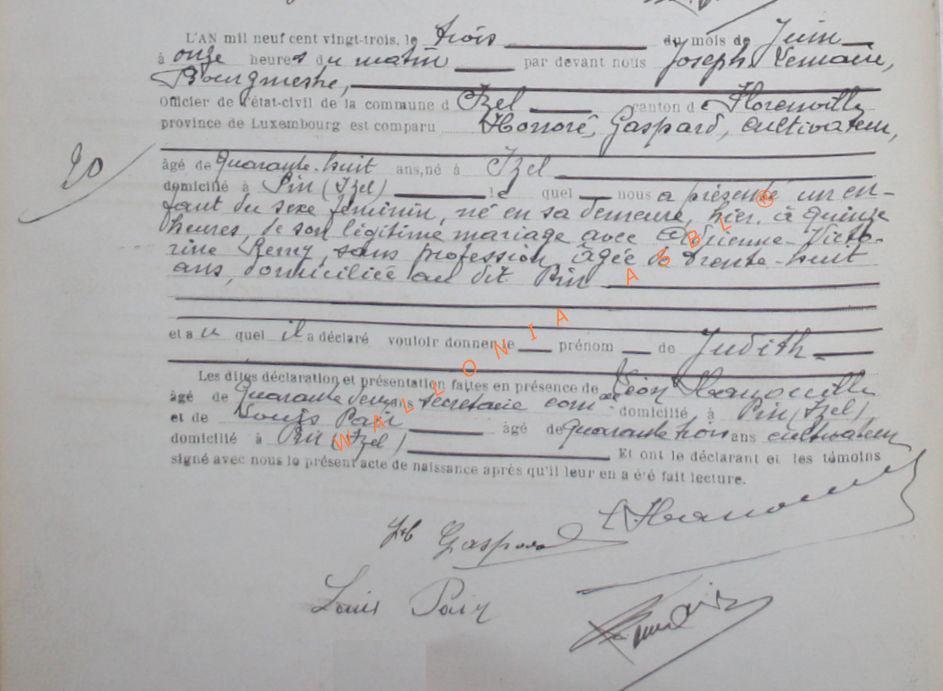 L'AN mil neuf cent vingt-trois, le trois du mois de Juin
à onze heures du matin par devant nous Joseph Lemaire,
Bourgmestre,
Officier de l'état-civil de la commune d Izel canton de Florenville
province de Luxembourg est comparu Honoré, Gaspard, cultivateur,
20
âgé de quarante-huit ans, né à Izel
domicilié à Pin (Izel) lequel nous a présenté un en-
fant du sexe féminin, né en sa demeure, hier, à quinze
heures, de son légitime mariage avec Adrienne-Victo-
rine Remy, sans profession, âgée de trente-huit
ans, domiciliée au dit Pin
et au quel il a déclaré vouloir donner le prénom de Judith
Les dites déclaration et présentation faites en présence de Léon
âgé de quarante deux ans secrétaire comal domicilié à Pin (Izel),
et de Louis âgé de quarante trois ans cultivateur
domicilié à Pin (Izel) Et ont le déclarant et les témoins
signé avec nous le présent acte de naissance après qu'il leur en a été fait lecture.
Gaspard
Louis
WALLONIA ASBL ©